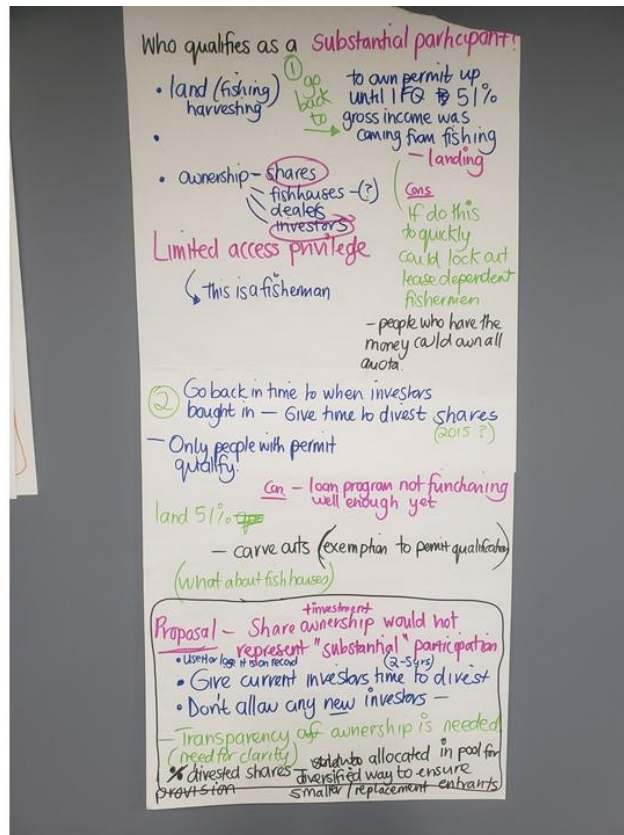 Who qualifies as a Substantial participant?
• land (fishing)
harvesting
①
go
back
to
to own permit up
until IFQ 51%
gross income was
coming from fishing
— landing
•
• ownership — shares
fishhouses — (?)
dealers
investors
Cons
If do this
to quickly
could lock out
lease dependent
fishermen
Limited access privilege
this is a fisherman
— people who have the
money could own all
quota.
② Go back in time to when investors
bought in — Give time to divest shares
(2015?)
— Only people with permit
qualify.
Con — loan program not functioning
well enough yet
land 51%
— carve outs (exemption to permit qualification)
(What about fish houses)
+investment
Proposal — Share ownership would not
represent "substantial" participation
• Use it or lose it is on record
(2-5yrs)
• Give current investors time to divest
• Don't allow any new investors —
— Transparency of ownership is needed
(need for clarity)
% divested shares allocated in pool for
provision
diversified way to ensure
smaller/replacement entrants